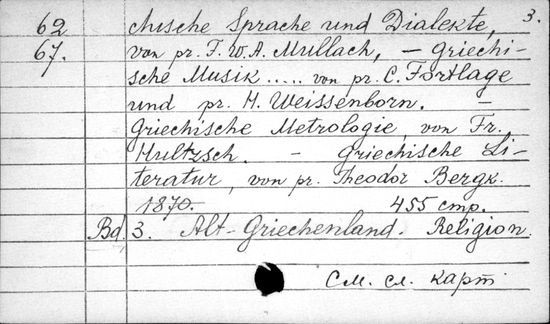 3.
62 chische Sprache und Dialekte,
67. von pr. F. W. A. Mullach, – Griechi-
sche Musik ..... von pr. C. Fortlage
und pr. H. Weissenborn. –
Griechische Metrologie, von Fr.
Hultzsch. – Griechische Li-
teratur, von pr. Theodor Bergk.
1870. 455 стр.
Bd. 3. Alt-Griechenland. Religion.
См. сл. карт